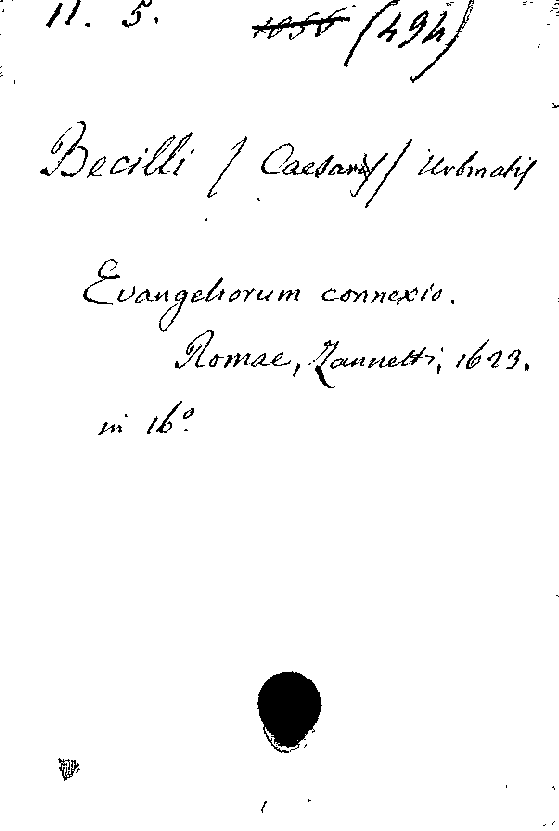 11. 5. 1056 (494)
Becilli / Caesaris / Urbinatis
Evangeliorum connexio.
Romae, Zannetti, 1623.
in 16º.